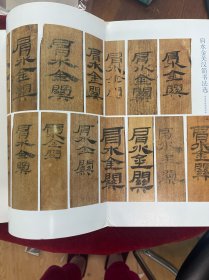 肩水金关汉简书法选
肩水金關
肩水金關
肩水金
肩水金關
肩水金關
肩水金關
肩水金關
肩水金關
肩水金關
肩水金關
肩水金關
肩水金關